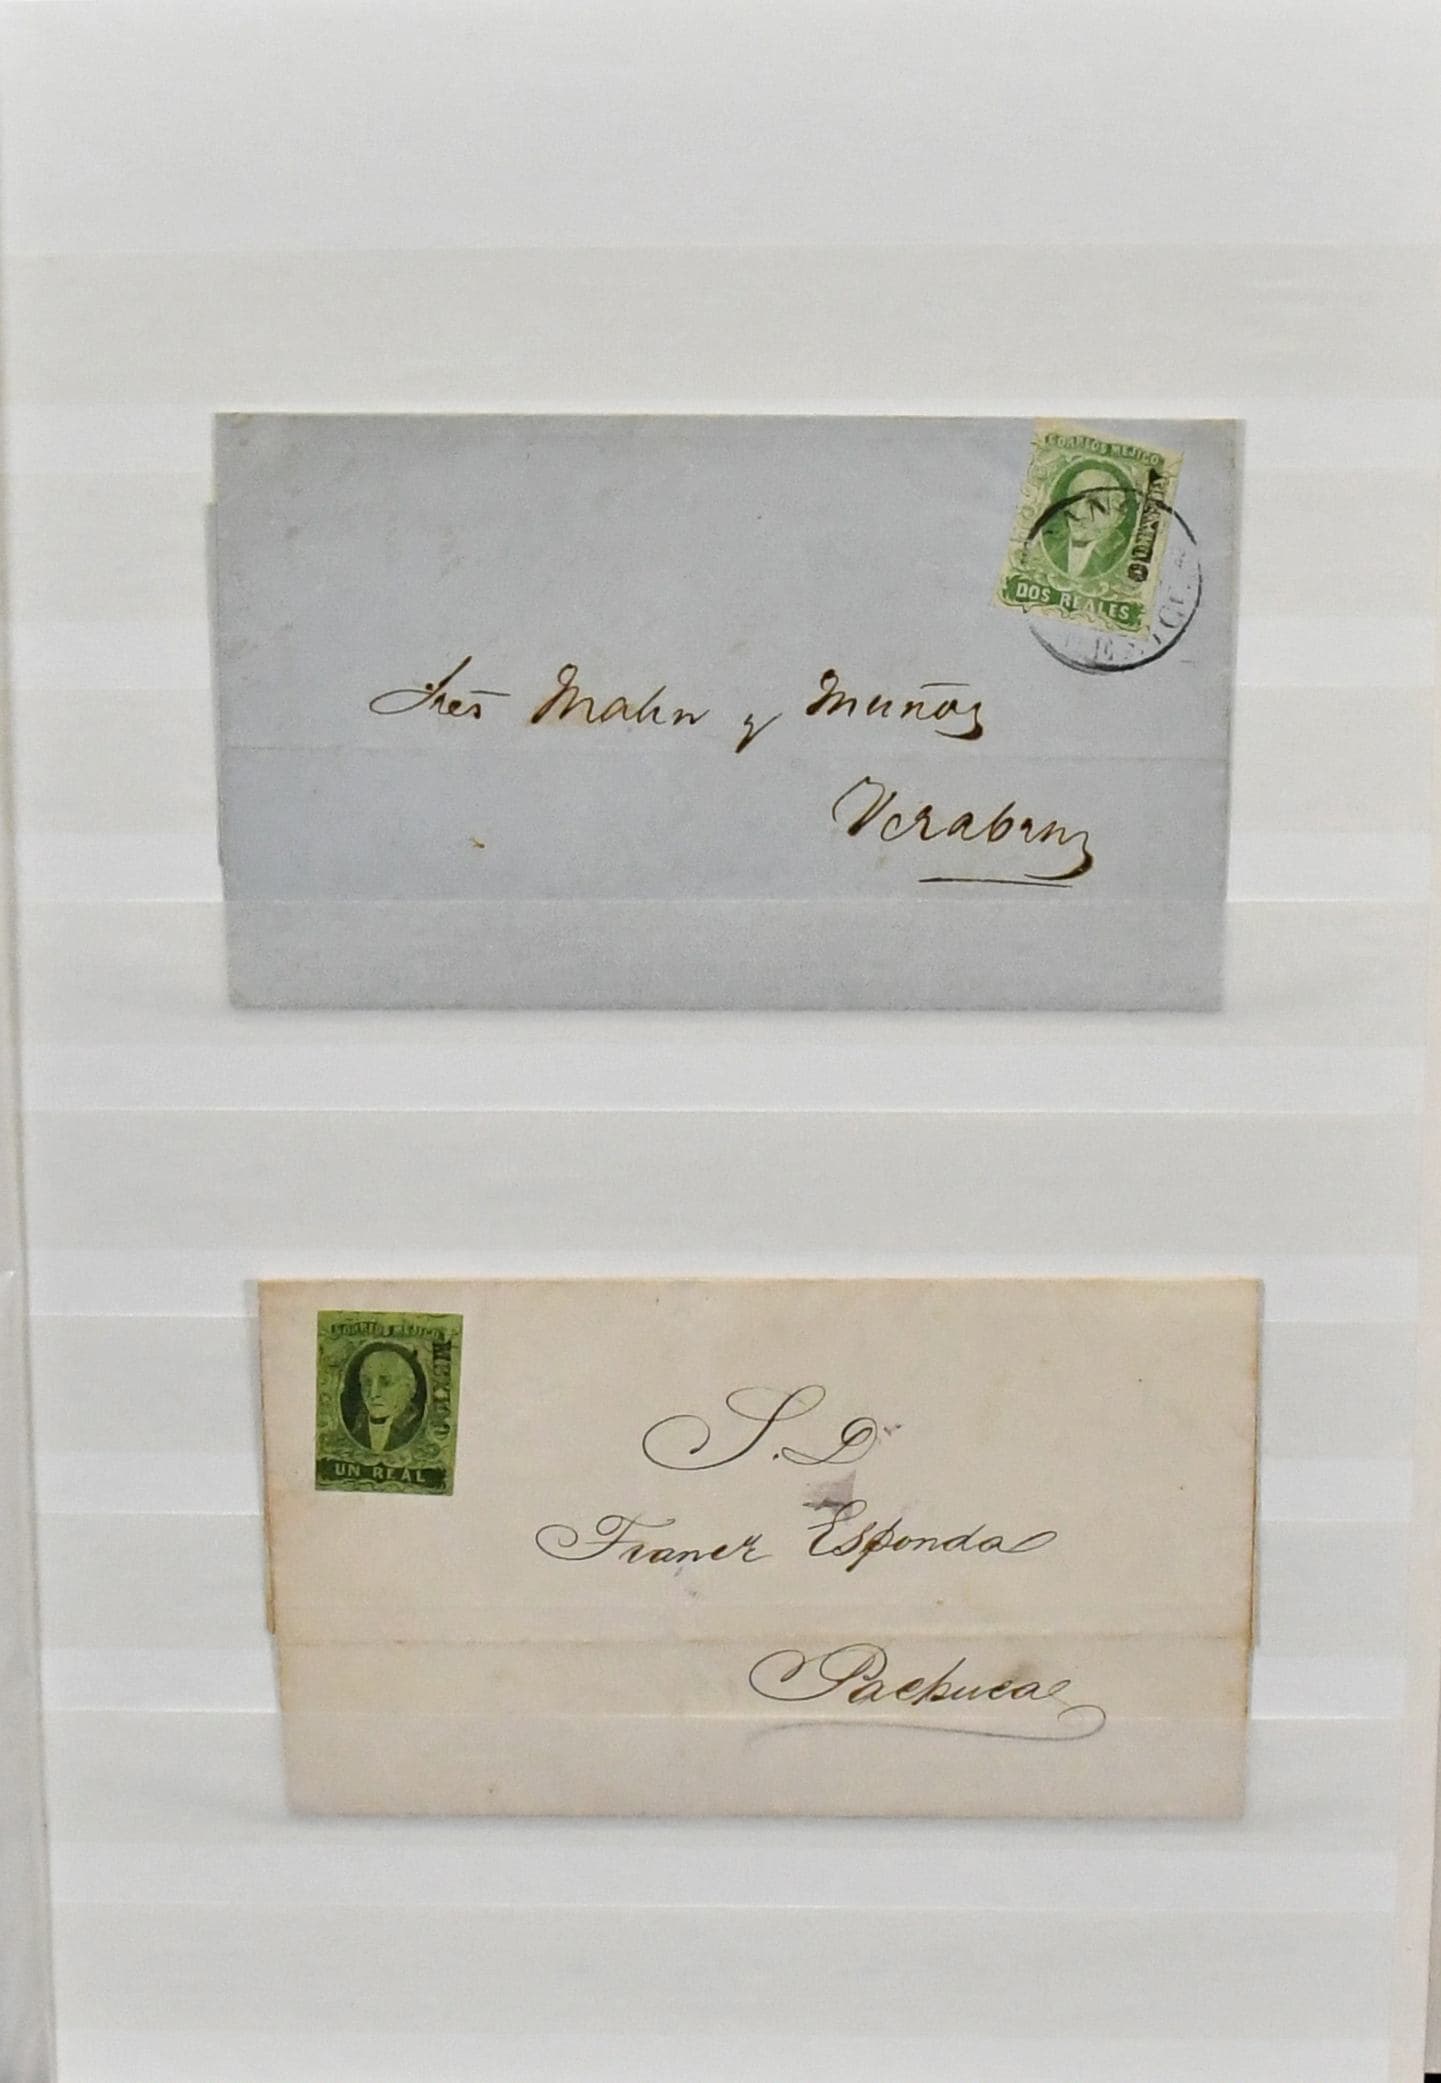 CORREOS MEJICO
DOS REALES
Sres Mahn y Muñoz
Veracruz
CORREOS MEJICO
MEXICO
UN REAL
S. D.
Francº Esponda
Pachuca